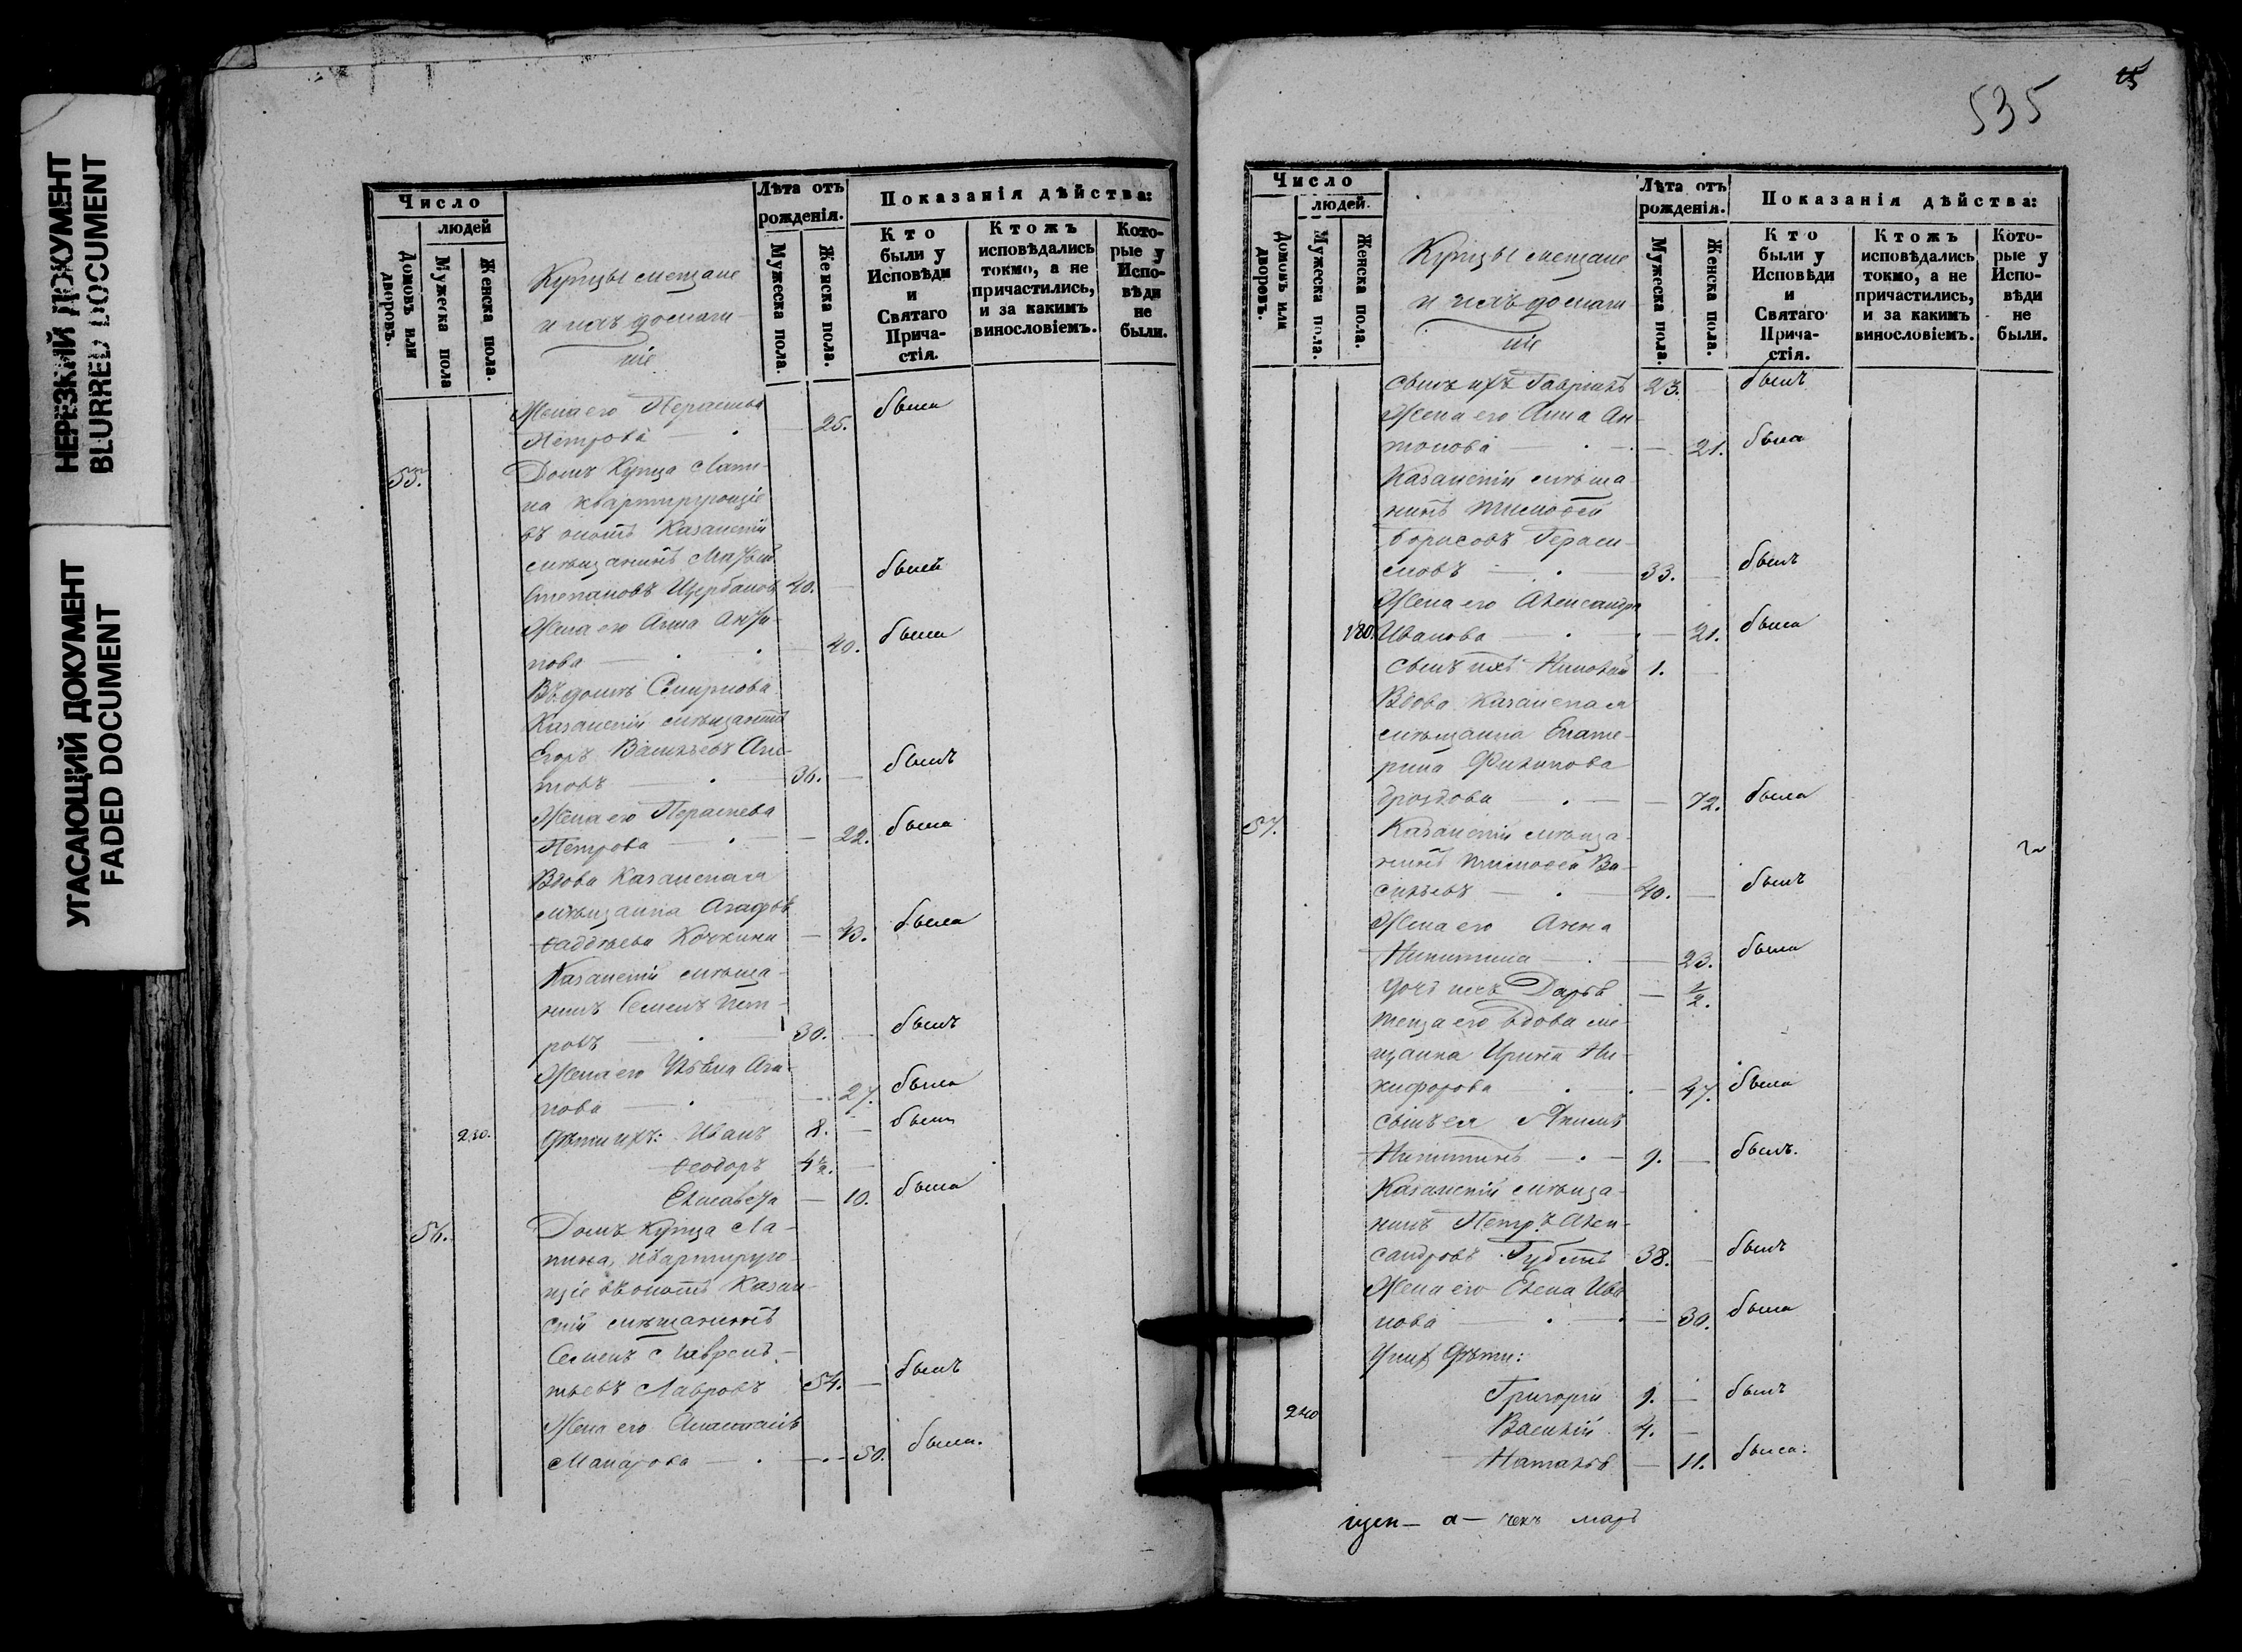 НЕРЕЗКИЙ ДОКУМЕНТ
BLURRED DOCUMENT
УГАСАЮЩИЙ ДОКУМЕНТ
FADED DOCUMENT
Число
людей
Домовъ или дворовъ.
Мужеска пола
Женска пола.
Купцы мещане
и ихъ домаш-
ніе
Лѣта отъ рожденія.
Мужеска пола.
Женска пола.
Показанія дѣйства:
Кто были у Исповѣди и Святаго Прича-стія.
Ктожъ исповѣдались токмо, а не причастились, и за какимъ винословіемъ.
Кото-рые у Испо-вѣди не были.
Жена его Параскева
Петрова — 25. была
55. Домъ Купца Лапи-
на квартирующіе
въ ономъ Казанскій
мѣщанинъ
Степановъ Щербаковъ 40. — былъ
Жена его Анна
пова — 40. была
Въ домѣ Смирнова
Казанскій мѣщанинъ
Егоръ Васильевъ
товъ — 36. — былъ
Жена его Параскева
Петрова — 22. была
Вдова Казанская
мѣщанка Агафья
Ѳаддѣева Кочкина — 43. была
Казанскій мѣща-
нинъ Семенъ Пет-
ровъ — 30. — былъ
Жена его
пова — 27. была
230. Дѣти ихъ: Иванъ 8. — былъ
Ѳеодоръ 4½. —
Елисавета — 10. была
56. Домъ Купца Ла-
пина, квартирую-
щіе въ ономъ Казан-
скій мѣщанинъ
Семенъ Лаврень-
тьевъ Лавровъ 54. — былъ
Жена его Анастасія
Макарова — 50. была.
535
Число
людей.
Домовъ или дворовъ.
Мужеска пола.
Женска пола.
Купцы мещане
и ихъ домаш
ніе
Лѣта отъ рожденія.
Мужеска пола.
Женска пола.
Показанія дѣйства:
Кто были у Исповѣди и Святаго Прича-стія.
Ктожъ исповѣдались токмо, а не причастились, и за какимъ винословіемъ.
Кото-рые у Испо-вѣди не были.
Сынъ ихъ Гавріилъ 23. — былъ
Жена его Анна Ан-
тонова — 21. была
Казанскій мѣща-
нинъ Тимофей
Борисовъ Гераси-
мовъ — 33. — былъ
Жена его Александра
180. Иванова — 21. была
Сынъ ихъ Николай 1. —
Вдова Казанская
мѣщанка Екате-
рина Филипова
Дроздова — 72. была
57. Казанскій мѣща-
нинъ Тимофей Ва-
сильевъ — 40. — былъ
Жена его Алена
Никитина — 23. была
Дочь ихъ Дарья — ½.
Теща его вдова ме-
щанка Ирина Ни-
кифорова — 47. была
Сынъ ея Якимъ
Никитинъ — 9. — былъ.
Казанскій мѣща-
нинъ Петръ Алек-
сандровъ Губинъ 38. — былъ
Жена его Елена Ива
нова — 30. была
У нихъ Дѣти:
Григорій 9. — былъ
240 Василій 4. —
Наталья — 11. была.